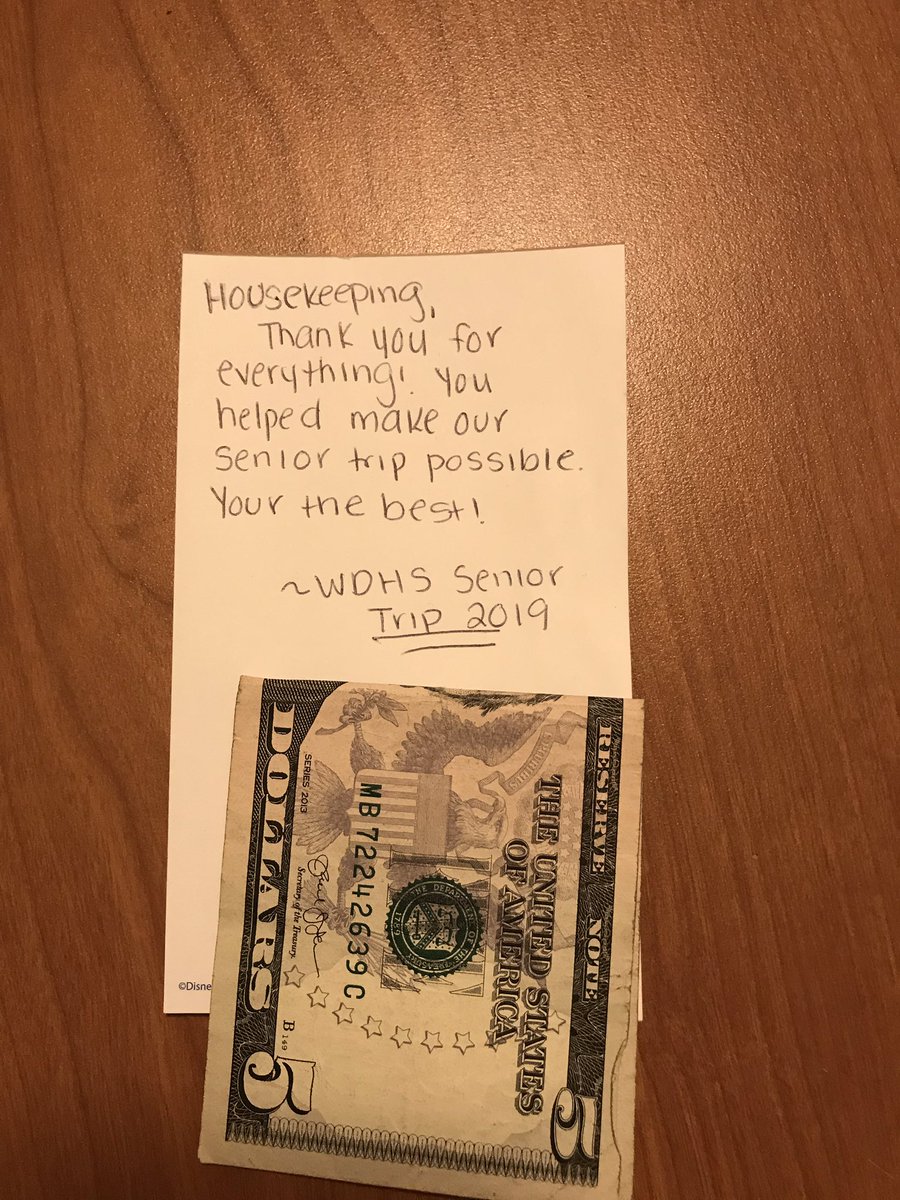 Housekeeping,
Thank you for
everything! You
helped make our
senior trip possible.
Your the best!
~WDHS Senior
Trip 2019
©Disne
RESERVE NOTE
THE UNITED STATES
OF AMERICA
MB72242639C
SERIES 2013
Secretary of the Treasury.
B 149
DOLLARS
5
5